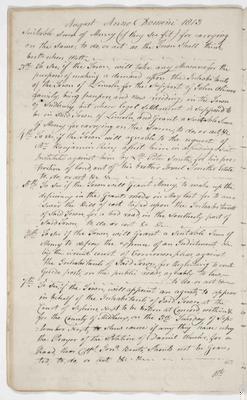 August Anno Domini 1813
Suitable Sum of Money (if they see fit) for carrying
on the same, to do or act as the Town shall think
best when Met
3ly To See if the Town will take any Measures for the
purpose of making a demand upon the Inhabitants
of the Town of Lincoln for the support of John
family, being paupers and now residing in the Town
of Sudbury but whose legal settlement is supposed to
be in said Town of Lincoln, and grant a Suitable Sum
of Money for carrying on the same, to do, or act &c
4ly To See if the Town will agree to the request of
Mr. Benjamin
against him by
portion of land, out of his Brother Smiths Estate
to do or act &c
5ly To See if the Town will Grant Money, to make up the
deficiency in the Grant made in for
the Bill of Cost upon the Inhabitants
of Said Town for a bad road in the Southerly part of
Said Town to do or act &c
6ly To See if the Town will Grant a Suitable Sum of
Money to defray the expence of an Indictment
by the circuit court of Common Pleas against
the Inhabitants of Said Town, for neglecting to erect
guide posts on the public roads agreeably to Law
to do or act &c
7ly To See if the Town will appoint an agent to appear
in behalf of the Inhabitants of Said Town at the
Court of Sessions next to be holden at Concord within &
for the County of Middlesex, on the 3d Tuesday of Sep-
tember Next, to Shew cause if any they have why
the Prayer of the Petition of Daniel for a
Road from Capt. Should not be gran-
ted, to do or act &c
8ly